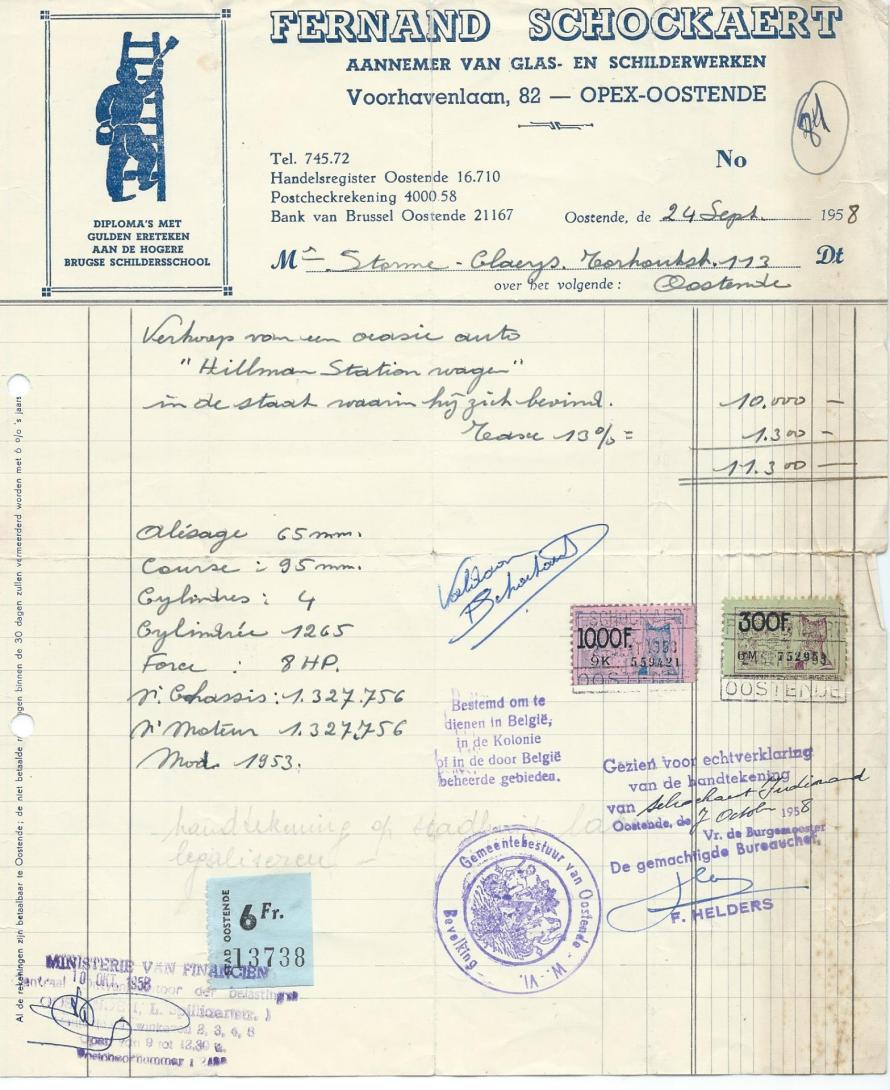 FERNAND SCHOCKAERT
AANNEMER VAN GLAS- EN SCHILDERWERKEN
Voorhavenlaan, 82 — OPEX-OOSTENDE
84
DIPLOMA'S MET
GULDEN ERETEKEN
AAN DE HOGERE
BRUGSE SCHILDERSSCHOOL
Tel. 745.72
Handelsregister Oostende 16.710
Postcheckrekening 4000.58
Bank van Brussel Oostende 21167
No
Oostende, de 24 Sept. 1958
Mr Storme - Claeys. Torhoutst. 113 Dt
over het volgende : Oostende
Verkoop van een ocasie auto
"Hillman Station wagen"
in de staat waarin hij zich bevind. 10.000 —
Taxe 13% = 1.300 —
11.300 —
Alésage 65 mm.
Course : 95 mm.
Cylindres : 4
Cylindrée 1265
Force : 8 HP.
N° Chassis : 1.327.756
N° Moteur 1.327.756
Mod. 1953.
Voldaan
Schockaert
1000F.
9K 559421
OOSTENDE
300F.
752953
OOSTENDE
Bestemd om te
dienen in België,
in de Kolonie
of in de door België
beheerde gebieden.
Gezien voor echtverklaring
van de handtekening
van Schockaert Ferdinand
Oostende, de 7 October 1958
Vr. de Burgemeester
De gemachtigde Bureauchef,
F. HELDERS
handtekening op stadhuis laten
legaliseren —
Gemeentebestuur van Oostende - W.-Vl.
Bevolking
STAD OOSTENDE
6 Fr.
13738
MINISTERIE VAN FINANCIEN
10 OKT. 1958
kantoor der belastingen
2, 3, 4, 5
Open van 9 tot 12.30 u.
Al de rekeningen zijn betaalbaar te Oostende ; de niet betaalde rekeningen binnen de 30 dagen zullen vermeerderd worden met 6 o/o 's jaars